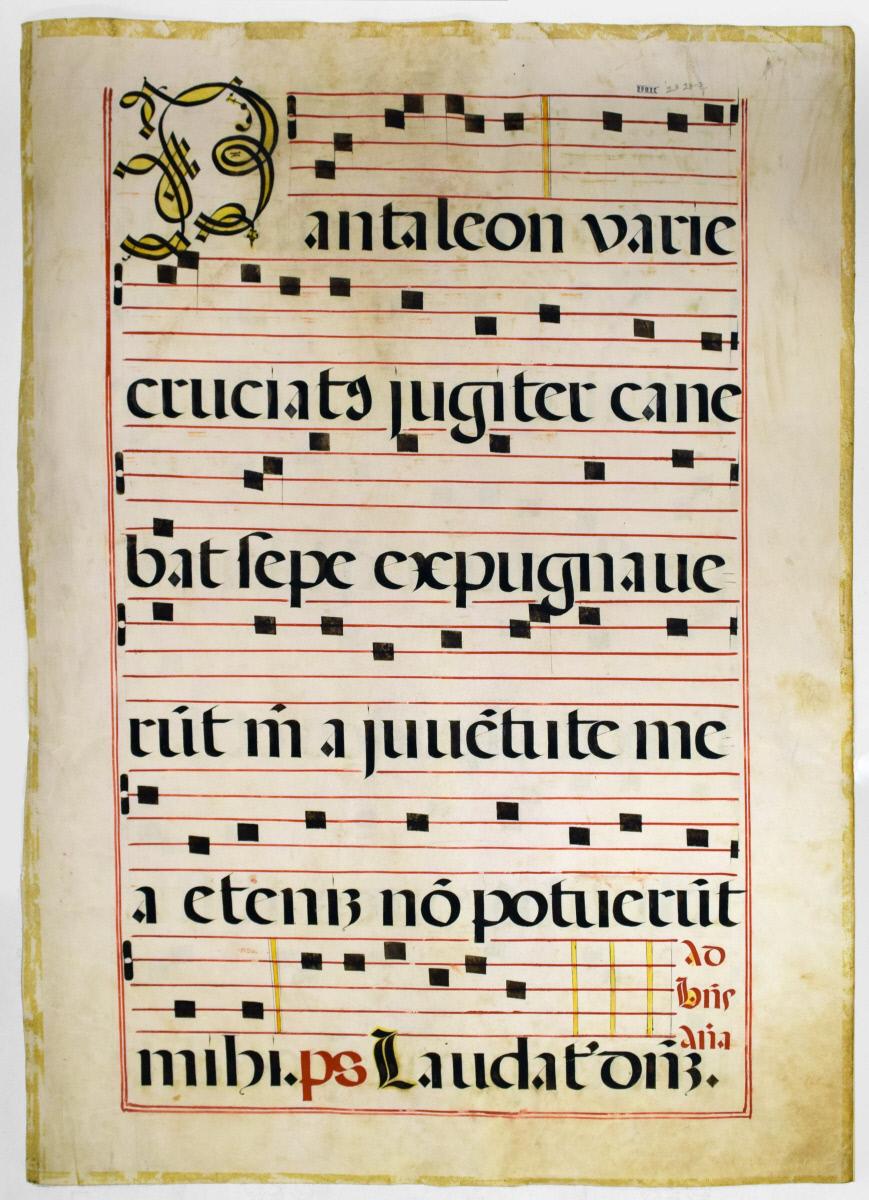 Pantaleon varie
cruciatꝰ jugiter cane
bat ſepe expugnaue
rūt m̄ a juuētute me
a etenıꝫ nō potuerūt
mihi. ps Laudat' dn̄ꝫ.
ad
bn̄s
an̄a